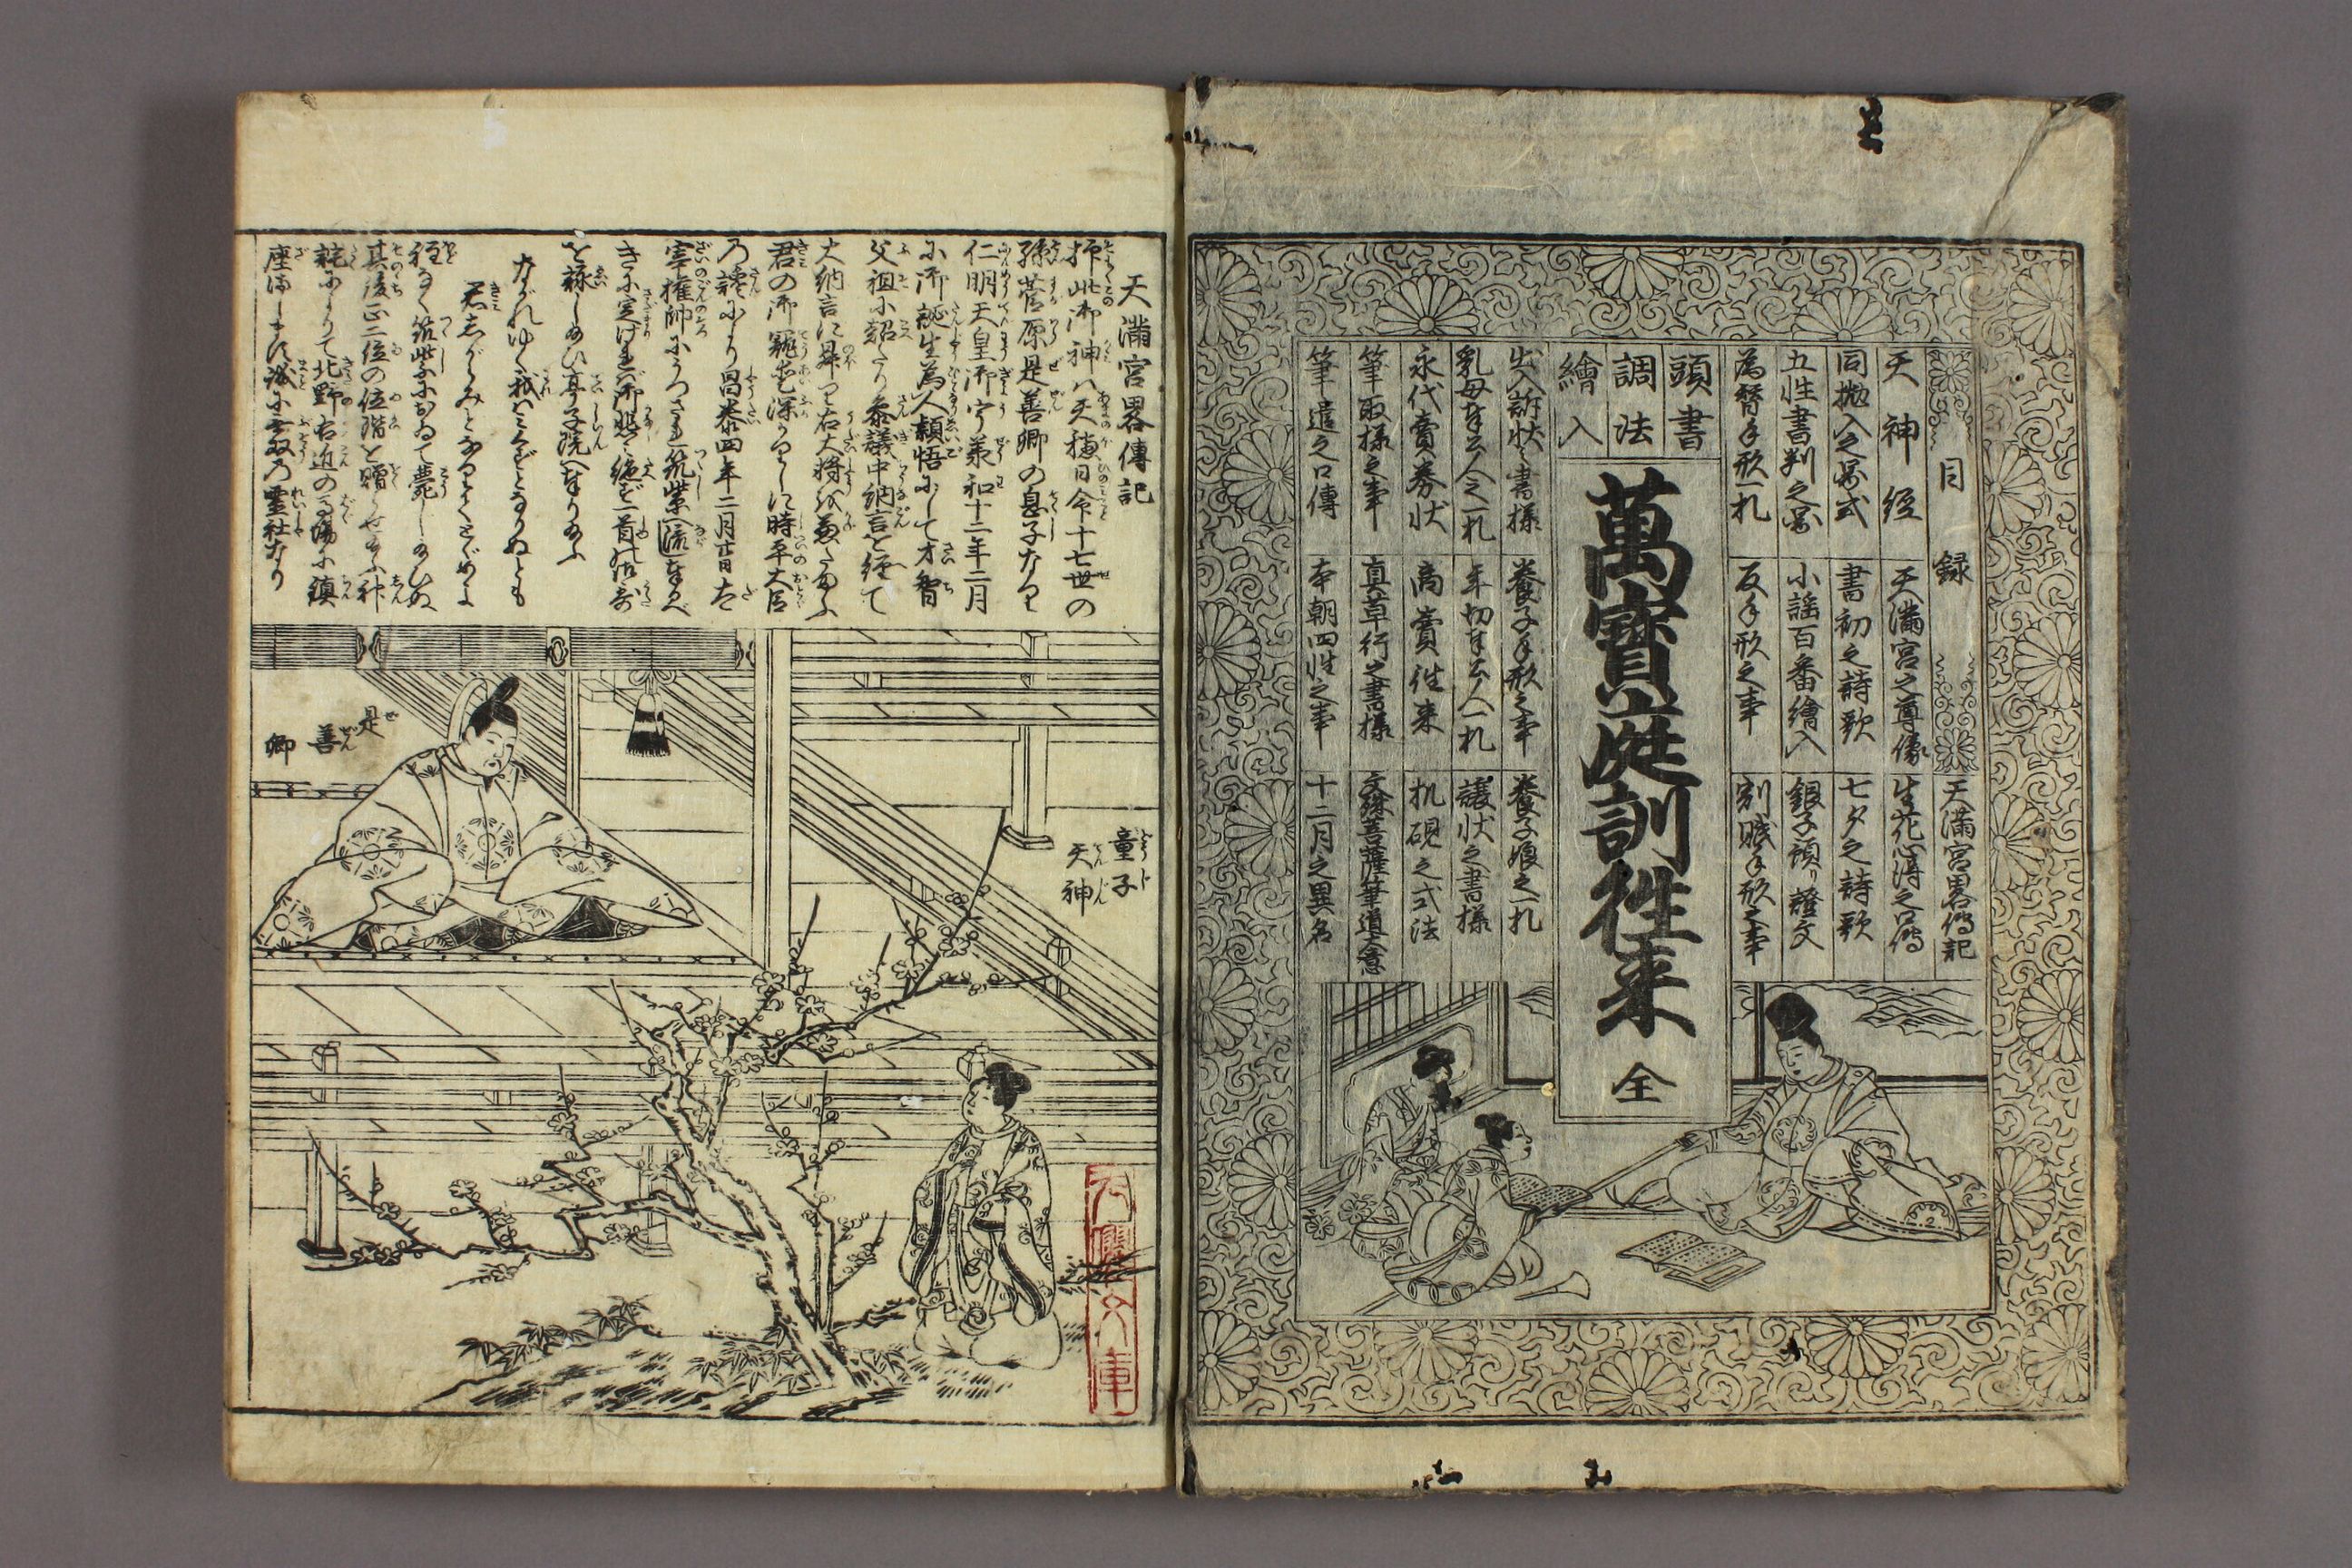 目録
天満宮畧傳記
天神経
天満宮之尊像
生花心得之口傳
同抛入之畧式
書初之詩歌
七夕之詩歌
五性書判之畧
小謡百番繪入
銀子預り證文
為替手形一札
反手形之事
割賦手形之事
頭書
調法
繪入
萬寳庭訓徃来 全
出入訴状之書様
養子手形之事
養子娘之一札
乳母奉公人之一札
年切奉公人一札
譲状之書様
永代賣券状
商賣徃来
机硯之式法
筆取様之事
真草行之書様
文殊菩薩筆道大意
筆遣之口傳
本朝四性之事
十二月之異名
天滿宮畧傳記
抑此御神ハ天穂日命十七世の
孫菅原是善卿の息子なり
仁明天皇御宇承和十二年二月
に御誕生為人頴悟にして才智
父祖に超たり参議中納言を経て
大納言に昇り右大将を兼たまふ
君の御寵愛深かりしに時平大臣
乃讒により昌泰四年二月廿日太
宰権帥にうつされ筑紫へ流奉るべ
きに定けれバ御悲に絶ず一首の御哥
を詠しめひ亭子院へ奉りたまふ
ながれゆく我ハみくづとなりぬとも
君しがらみとなりてとゞめよ
程なく筑紫におゐて薨したまひぬ
其後正二位の位階を贈らせたまふ神
託によりて北野右近の馬場に鎮
座まします誠に無双乃霊社なり
是善卿
童子
天神
文庫